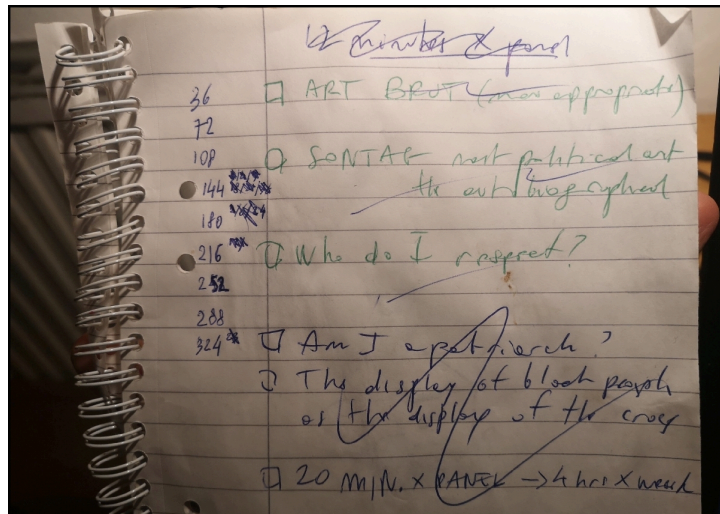 36
72
108
144
180
216
252
288
324
ART BRUT (more appropriate)
SONTAG most political art
the autobiographical
Who do I respect?
Am I a patriarch?
The display of black people
as the display of the
20 MIN. X PANEL → 4 hrs X week